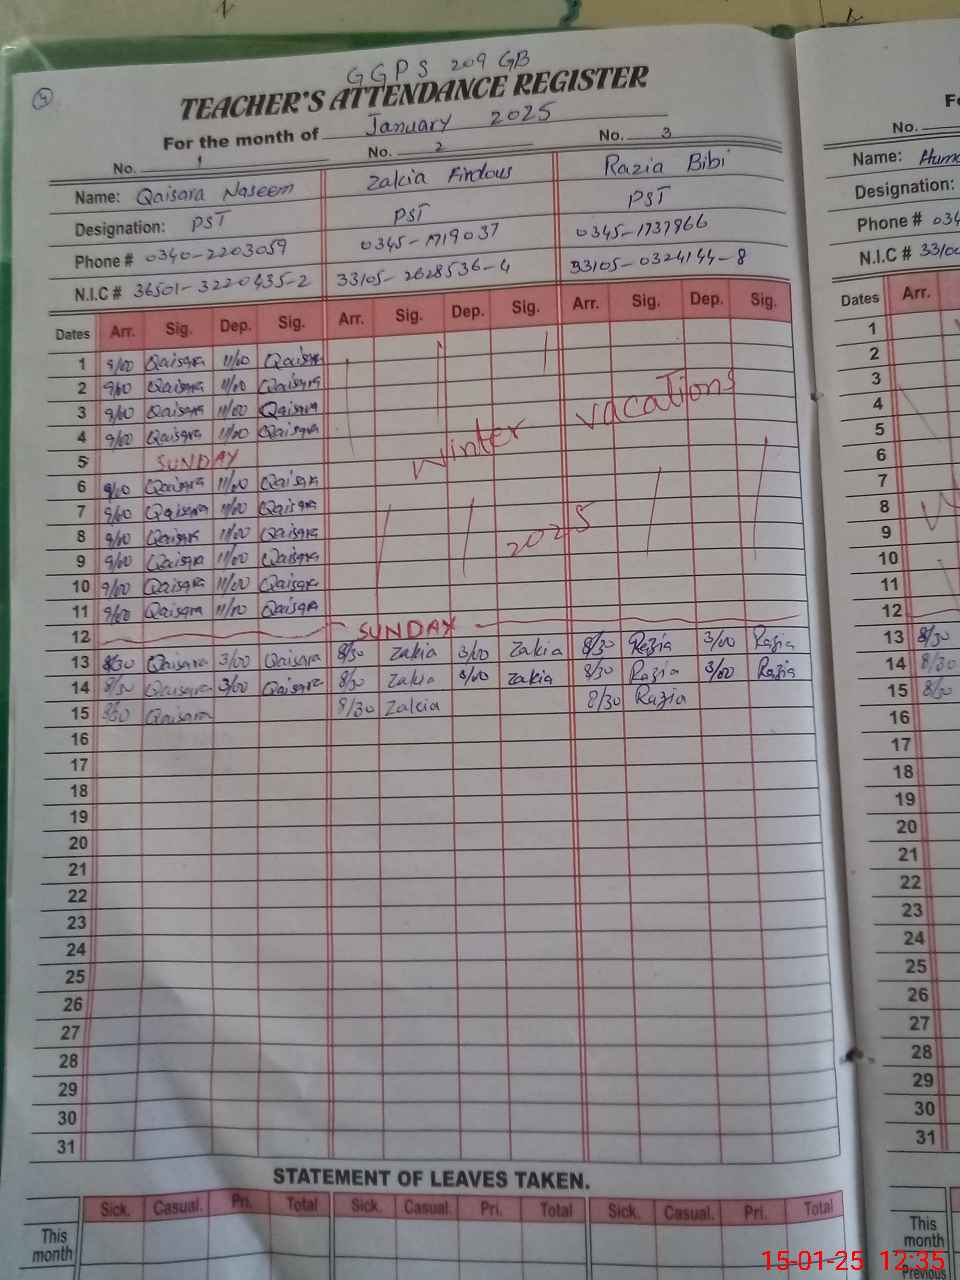 GGPS 209 GB
TEACHER'S ATTENDANCE REGISTER
For the month of January 2025
No. 1 No. 2 No. 3
Name: Qaisara Naseem Zakia Firdous Razia Bibi
Designation: PST PST PST
Phone # 0340-2203059 0345-1719037 0345-1737966
N.I.C # 36501-3220435-2 33105-2628536-4 33105-0324144-8
Dates Arr. Sig. Dep. Sig. Arr. Sig. Dep. Sig. Arr. Sig. Dep. Sig.
1 9/00 Qaisara 11/00 Qaisara
2 9/00 Qaisara 11/00 Qaisara
3 9/00 Qaisara 11/00 Qaisara
4 9/00 Qaisara 11/00 Qaisara
Winter vacations
5 SUNDAY
6 9/00 Qaisara 11/00 Qaisara
7 9/00 Qaisara 11/00 Qaisara
8 9/00 Qaisara 11/00 Qaisara
2025
9 9/00 Qaisara 11/00 Qaisara
10 9/00 Qaisara 11/00 Qaisara
11 9/00 Qaisara 11/00 Qaisara
12 SUNDAY
13 8/30 Qaisara 3/00 Qaisara 8/30 Zakia 3/00 Zakia 8/30 Razia 3/00 Razia
14 8/30 Qaisara 3/00 Qaisara 8/30 Zakia 3/00 Zakia 8/30 Razia 3/00 Razia
15 8/30 Qaisara 8/30 Zakia 8/30 Razia
16
17
18
19
20
21
22
23
24
25
26
27
28
29
30
31
STATEMENT OF LEAVES TAKEN.
Sick. Casual. Pri. Total Sick. Casual. Pri. Total Sick. Casual. Pri. Total
This
month
No.
Name:
Designation:
Phone #
N.I.C #
Dates Arr.
1
2
3
4
5
6
7
8
9
10
11
12
13 8/30
14 8/30
15 8/30
16
17
18
19
20
21
22
23
24
25
26
27
28
29
30
31
This
month
Previous
15-01-25 12:35